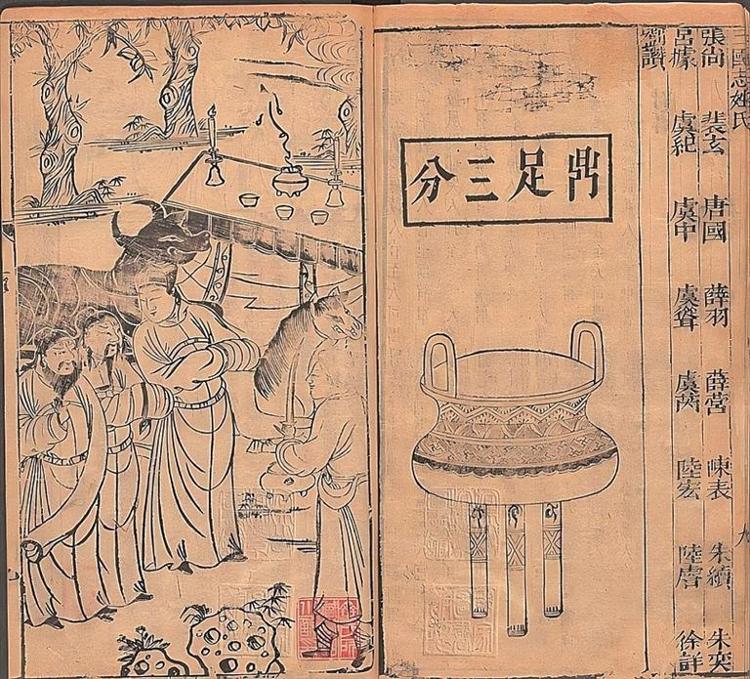 三國志姓氏
張尚 裴玄 唐國 薛羽 薛瑩 陳表 朱續 朱奕
呂據 虞紀 虞中 虞聳 虞 陸宏 陸膚 徐詳
劉讚
鼎足三分